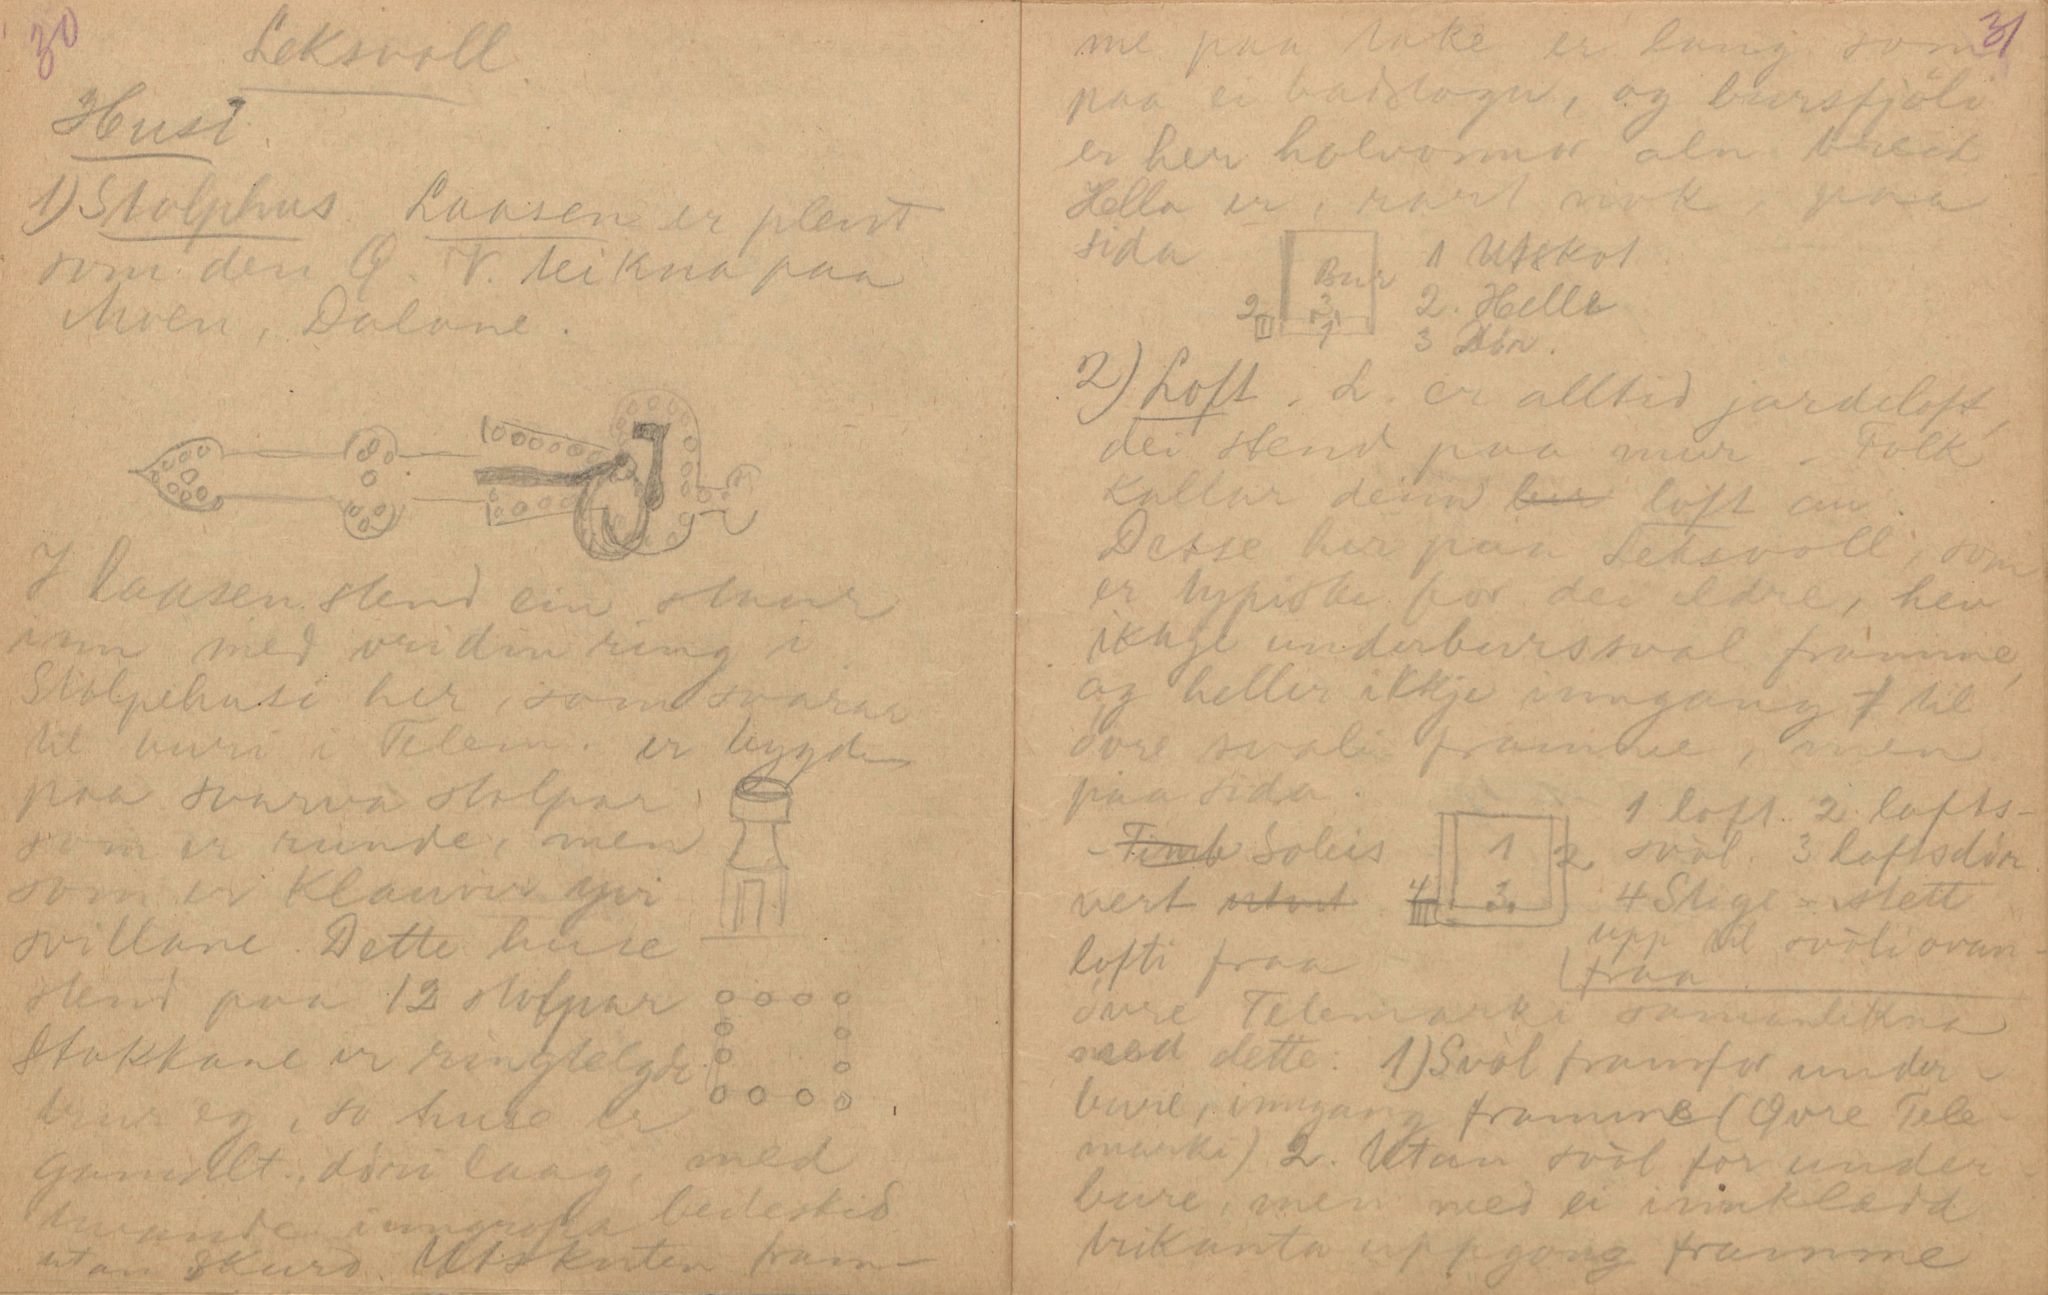 30
Leksvoll
Husi
1) Stolphus. Laasen er pleint
som den O. V. teikna paa
Moen, Dalane.
I laasen stend ein staur
inn med vridin ring i.
Stolpehusi her, som svarar
til buri i Telem. er bygde
paa svarva stolpar
som er runde, men
som er klauvi yvi
svillane. Dette huse
stend paa 12 stolpar
Stokkane er ringtelgde
trur eg, so huse er
gamalt, döri laag, med
inngropa beitskid
utan skurd. Utskuten fram-
31
me paa take er lang som
paa ei badstogu, og bursfjöli
er her halvonnor aln breid
Hella er, rart nok, paa
sida
Bur
2 3
1
1 Utskot
2. Hella
3 Dör.
2) Loft. L. er alltid jardeloft,
dei stend paa mur. Folk
kallar deim bur loft au.
Desse her paa Leksvoll, som
er typiske for dei eldre, hev
ikkje underburssval framme,
og heller ikkje inngang til
övre svali framme, men
paa sida.
1 2
3
4
1 loft. 2 lofts-
svol. 3 loftsdör
4 Stige - stett
upp til svoli ovan-
fraa
- Timb Soleis
vert
lofti fraa
övre Telemarki samanlikna
med dette: 1) Svol framfor under-
bure, inngang framme (Övre Tele-
marki) 2. Utan svol for under-
bure, men med ei innklædd
trikanta uppgong framme